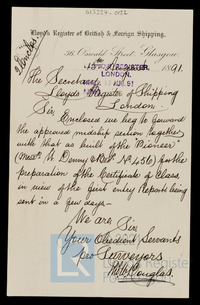 Lloyd's Register of British & Foreign Shipping.
36, Oswald Street, Glasgow,
15th 1891.
The Secretary
Lloyds Register of Shipping
London.
Sir,
Enclosed we beg to forward
the approved midship section together
with that as built of the "Pioneer"
(Messrs W. Denny & Bros No 456) for the
preparation of the Certificate of Class
in view of the first entry Reports being
sent in a few days—
We are Sir
Your Obedient Servants
pro Surveyors